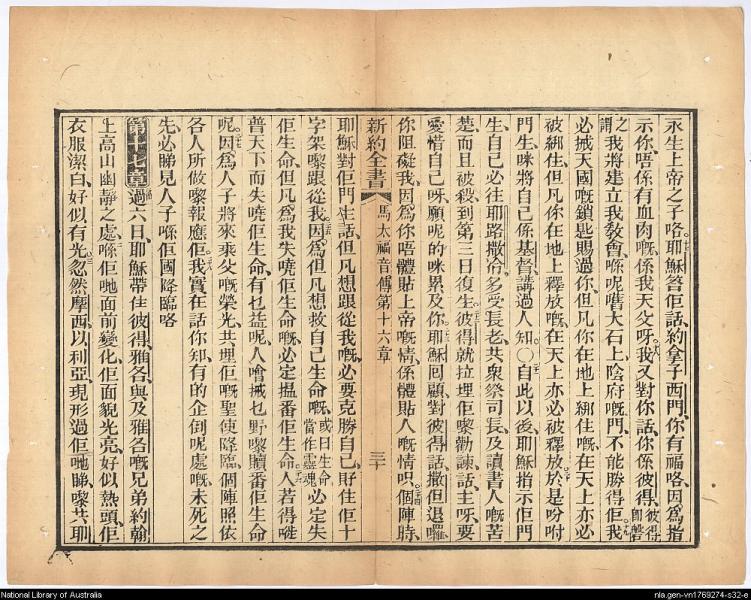 永生上帝之子咯耶穌答佢話約拿子西門你有福咯因爲指
示你唔係有血肉嘅係我天父呀我又對你話你係彼得彼得即磐石
之謂我將建立我敎會喺呢嚿大石上陰府嘅門不能勝得佢我
必攞天國嘅鎖匙賜過你但凡你在地上綁住嘅在天上亦必
被綁住但凡你在地上釋放嘅在天上亦必被釋放於是吩咐
門生咪將自己係基督講過人知〇自此以後耶穌指示佢門
生自己必往耶路撒冷多受長老共祭司長及讀書人嘅苦
楚而且被殺到第三日復生彼得就拉埋佢嚟勸諫話主呀要
愛惜自己呀願呢的咪累及你耶穌囘顧對彼得話撒但退囉
你阻礙我因爲你唔體貼上帝嘅情係體貼人嘅情呮個陣時
新約全書 馬太福音傳第十六章 三十
耶穌對佢門生話但凡想跟從我嘅必要克勝自己𢬿住佢十
字架嚟跟從我因爲但凡想救自己生命嘅或曰生命當作靈魂必定失
佢生命但凡爲我失嘵佢生命嘅必定揾番佢生命人若得嘥
普天下而失嘵佢生命有乜益呢人噲攞乜野嚟贖番佢生命
呢因爲人子將來乘父嘅榮光共埋佢嘅聖使降臨個陣照依
各人所做嚟報應佢我實在話你知有的企倒呢處嘅未死之
先必睇見人子喺佢國降臨咯
第十七章過六日耶穌帶住彼得雅各與及雅各嘅兄弟約翰
上高山幽靜之處喺佢哋面前變化佢面貌光亮好似熱頭佢
衣服潔白好似有光忽然摩西以利亞現形過佢哋睇嚟共耶
National Library of Australia
nla.gen-vn1769274-s32-e